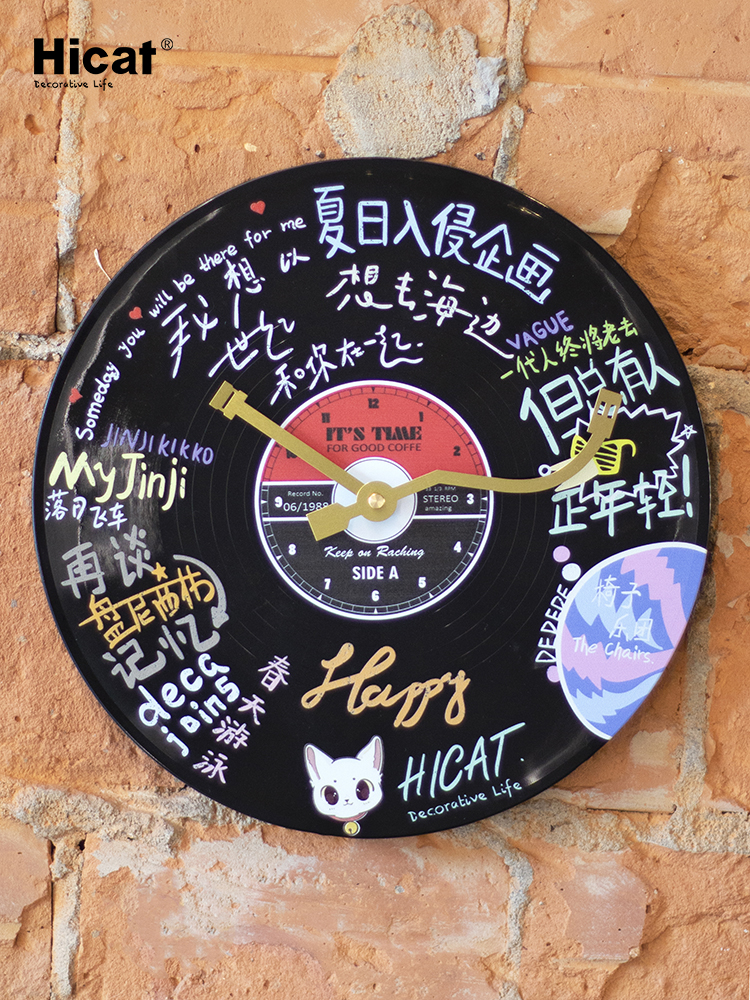 Hicat®
Decorative Life
Someday you will be there for me
夏日入侵企画
我想以
世纪
和你在一起
想去海边
VAGUE
一代人终将老去
但总有人
正年轻!
JINJIKIKKO
My Jinji
落日飞车
再谈
记忆
deca
joins
春天游泳
12
1
2
3
4
5
6
7
8
9
11
IT'S TIME
FOR GOOD COFFE
Record No.
06/1988
33 1/3 RPM
STEREO
amazing
Keep on Raching
SIDE A
DEDEDE
椅子
乐团
The Chairs.
Happy
HICAT.
Decorative Life